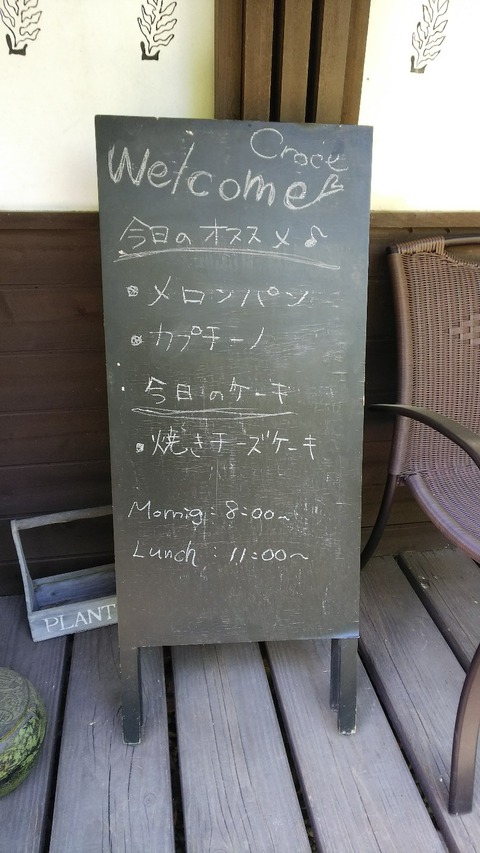 Croce
Welcome
今日のオススメ♪
・メロンパン
・カプチーノ
今日のケーキ
・焼きチーズケーキ
Mornig: 8:00~
Lunch: 11:00~
PLANT